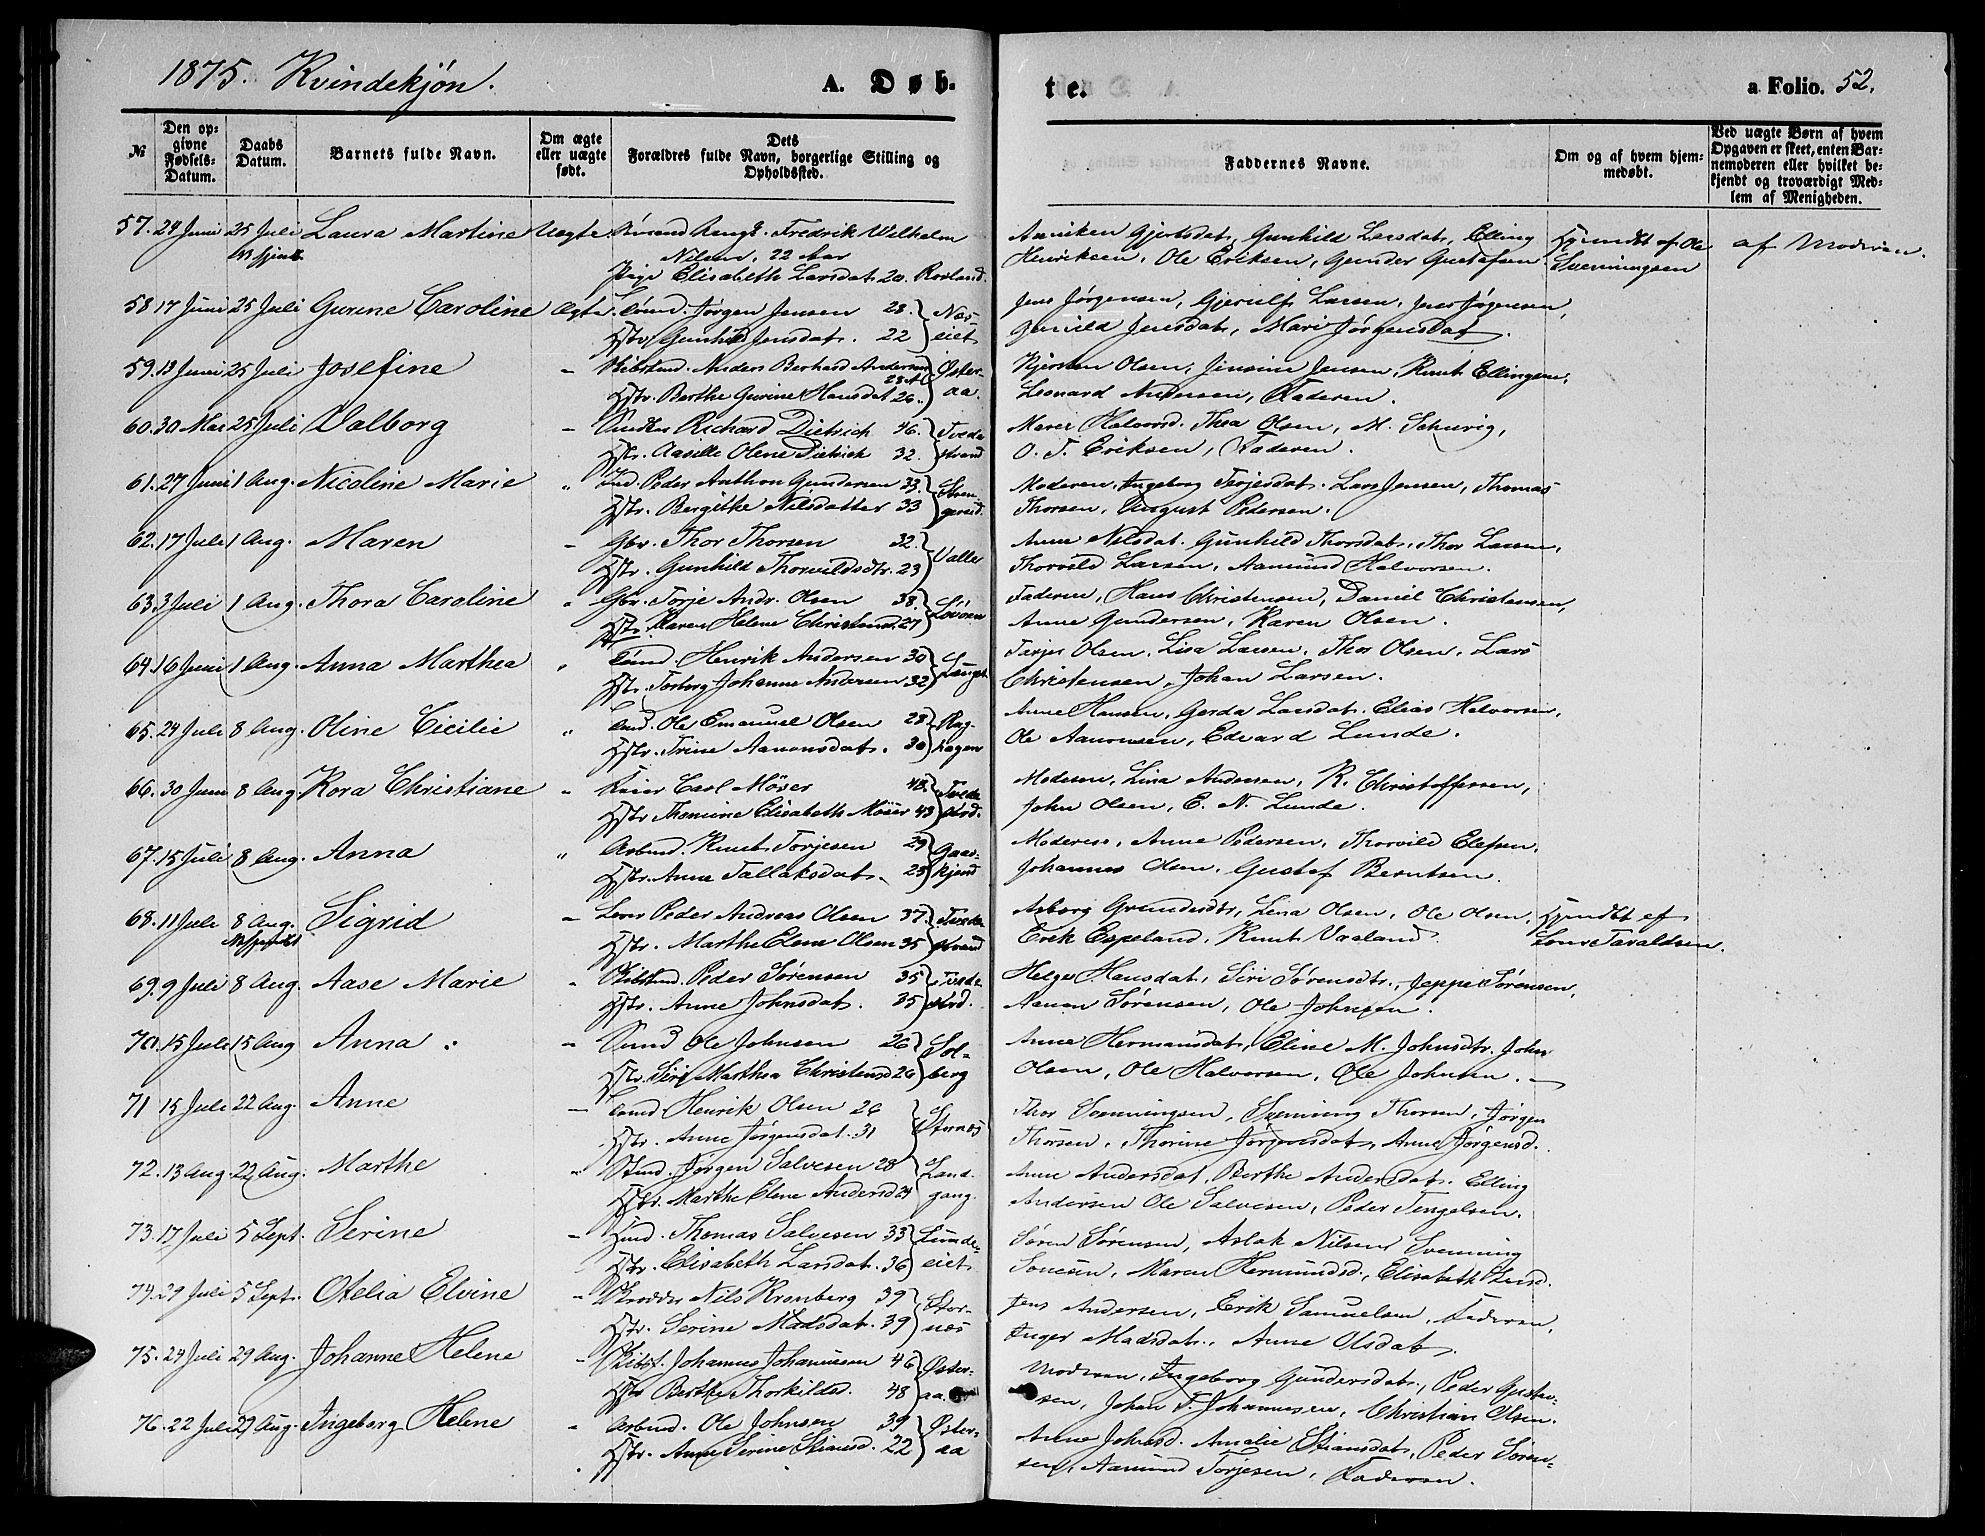 1875. Kvindekjøn.
A. Døb-
te.
a Folio. 52.
№
Den op-
givne
Fødsels-
Datum.
Daabs
Datum.
Barnets fulde Navn.
Om ægte
eller uægte
født.
Dets
Forældres fulde Navn, borgerlige Stilling og
Opholdssted.
Faddernes Navne.
Om og af hvem hjem-
medøbt.
Ved uægte Børn af hvem
Opgaven er skeet, enten Bar-
nemoderen eller hvilket be-
kjendt og troværdigt Med-
lem af Menigheden.
57. 24 Juni 25 Juli Laura Martine Uægte. Fredrik Vilhelm
Nilsen, 22 Aar
Pige Elisabeth Larsdat. 20. Rovland.
Anniken Gjertsdat, Gunhild Larsdat, Elling
Henriksen, Ole Eriksen, Gunder Gustafsen
Hjemdbt af Ole
Svenningsen
af Moderen.
58. 17 Juni 25 Juli Gurine Caroline Ægte. Tømd. Jørgen Jensen 28. Næs-
Hstr. Gunhild Jensdat. 22 eiet
Jens Jørgensen, Gjerulf Larsen, Jens Jørgensen,
Gunild Jensdat, Mari Jørgensdat.
59. 13 Juni 25 Juli Josefine - Skibstmd. Anders Berhard Andersen Øster-
Hstr. Berthe Gurine Hansdat 26. aa.
Kjersten Olsen, Jensine Jensen, Knut Ellingsen,
Leonard Andersen, Faderen.
60. 30 Mai 25 Juli Valborg - Richard Dietrich 46. Tvede-
Hstr. Aasille Olene Dietrich 32. strand
Maren Halvorsd. Thea Olsen, M. Schuvig,
O. T. Eriksen, Faderen.
61. 27 Juni 1 Aug. Nicoline Marie " Ind. Peder Anthon Gundersen 33.
Hstr. Bergitke Nilsdatter 33
Moderen, Ingeborg Terjesdat. Lars Jensen, Thomas
Thorsen, August Pedersen.
62. 17 Juli 1 Aug. Maren - Gbr. Thor Thorsen 32. Valle
Hstr. Gunhild Thorvildsdtr. 23
Anne Nilsdat. Gunhild Thorsdat, Thor Larsen,
Thorvild Larsen, Aamund Halvorsen.
63. 3 Juli 1 Aug. Thora Caroline " Gbr. Torje Andr. Olsen 38.
Hstr. Karen Helene Christensd. 27
Faderen, Hans Christensen, Daniel Christensen,
Anne Gundersen, Karen Olsen.
64. 16 Juni 1 Aug. Anna Marthea " Tømd. Henrik Andersen 30
Hstr. Torborg Johanne Andersen 32
Tarjer Olsen, Lisa Larsen, Thor Olsen, Lars
Christensen, Johan Larsen.
65. 24 Juli 8 Aug. Oline Cicilie " Tmd. Ole Emanuel Olsen 28
Hstr. Trine Aanonsdat. 30
Anne Hansen, Gerda Larsdat, Elias Halvorsen,
Ole Aanonsen, Edvard Lunde.
66. 30 Juni 8 Aug. Kora Christiane " Carl Möser 48. Tvede
Hstr. Thomine Elisabeth Möser 43 strd.
Moderen, Lina Andersen, K. Christoffersen,
John Olsen, E. N. Lunde.
67. 15 Juli 8 Aug. Anna " Arbmd. Knut Torjesen 29 Gaas-
Hstr. Anne Tallaksdat. 28 kjend
Moderen, Anne Pedersen, Thorvild Elefsen,
Johannes Olsen, Gustaf Berntsen.
68. 11 Juli 8 Aug. Sigrid - Peder Andreas Olsen 37. Tvede-
Hstr. Marthe Elene Olsen 35 strand
Asborg Grundesdtr, Lena Olsen, Ole Olsen,
Erik Espeland, Knut Vaaland.
Hjemdbt af
Taraldsen.
69. 9 Juli 8 Aug. Aase Marie " Skibstmd. Peder Sørensen 35 Tvede-
Hstr. Anne Johnsdat. 35 strd.
Helge Hansdat, Siri Sørensdtr., Jeppe Sørensen,
Aanon Sørensen, Ole Johnsen.
70. 15 Juli 15 Aug Anna - Ole Johnsen 26 Sol-
Hstr. Siri Marthea Christensd 26 berg
Anne Hermansdat, Eline M. Johnsdtr. John
Olsen, Ole Halvorsen, Ole Johnsen.
71 15 Juli 22 Aug. Anne - Tømd Henrik Olsen 26
Hstr. Anne Jørgensdat. 31 Stornæs
Thor Svenningsen, Svenning Thorsen, Jørgen
Thorsen, Thorine Jørgensdat, Anne Jørgensd.
72. 13 Aug 22 Aug. Marthe " Jørgen Salvesen 28 Land-
Hstr. Marthe Elene Andersd 24 gang.
Anne Andersdat, Berthe Andersdat, Elling
Andersen Ole Salvesen, Peder Tengelsen.
73. 17 Juli 5 Sept. Serine - Thomas Salvesen 33 Lunde-
Hstr. Elisabeth Larsdat. 36 eiet
Søren Sørensen, Aslak Nilsen Svenning
Maren Hermundsd., Elisabeth
74. 29 Juli 5 Sept. Otelia Elvine - Skrædder Nils Kronberg 39 Stor-
Hstr. Serine Madsdat. 39 næs
Jens Andersen, Erik Samuelsen, Faderen,
Inger Madsdat., Anne Olsdat.
75. 24 Juli 29 Aug. Johanne Helene - Skibst. Johannes Johannesen 46 Øster-
Hstr Berthe Thorkildsd. 48 aa.
Moderen, Ingeborg Gundersdat., Peder Gustav-
sen, Johan T. Johannesen, Christian Olsen.
76. 22 Juli 29 Aug. Ingeborg Helene - Arbmd. Ole Johnsen 39 Øster-
Hstr. Anne Serine Stiansd. 22 aa
Anne Johnsd. Amalie Stiansdat, Peder Søren-
sen, Aamund Torjesen, Faderen.